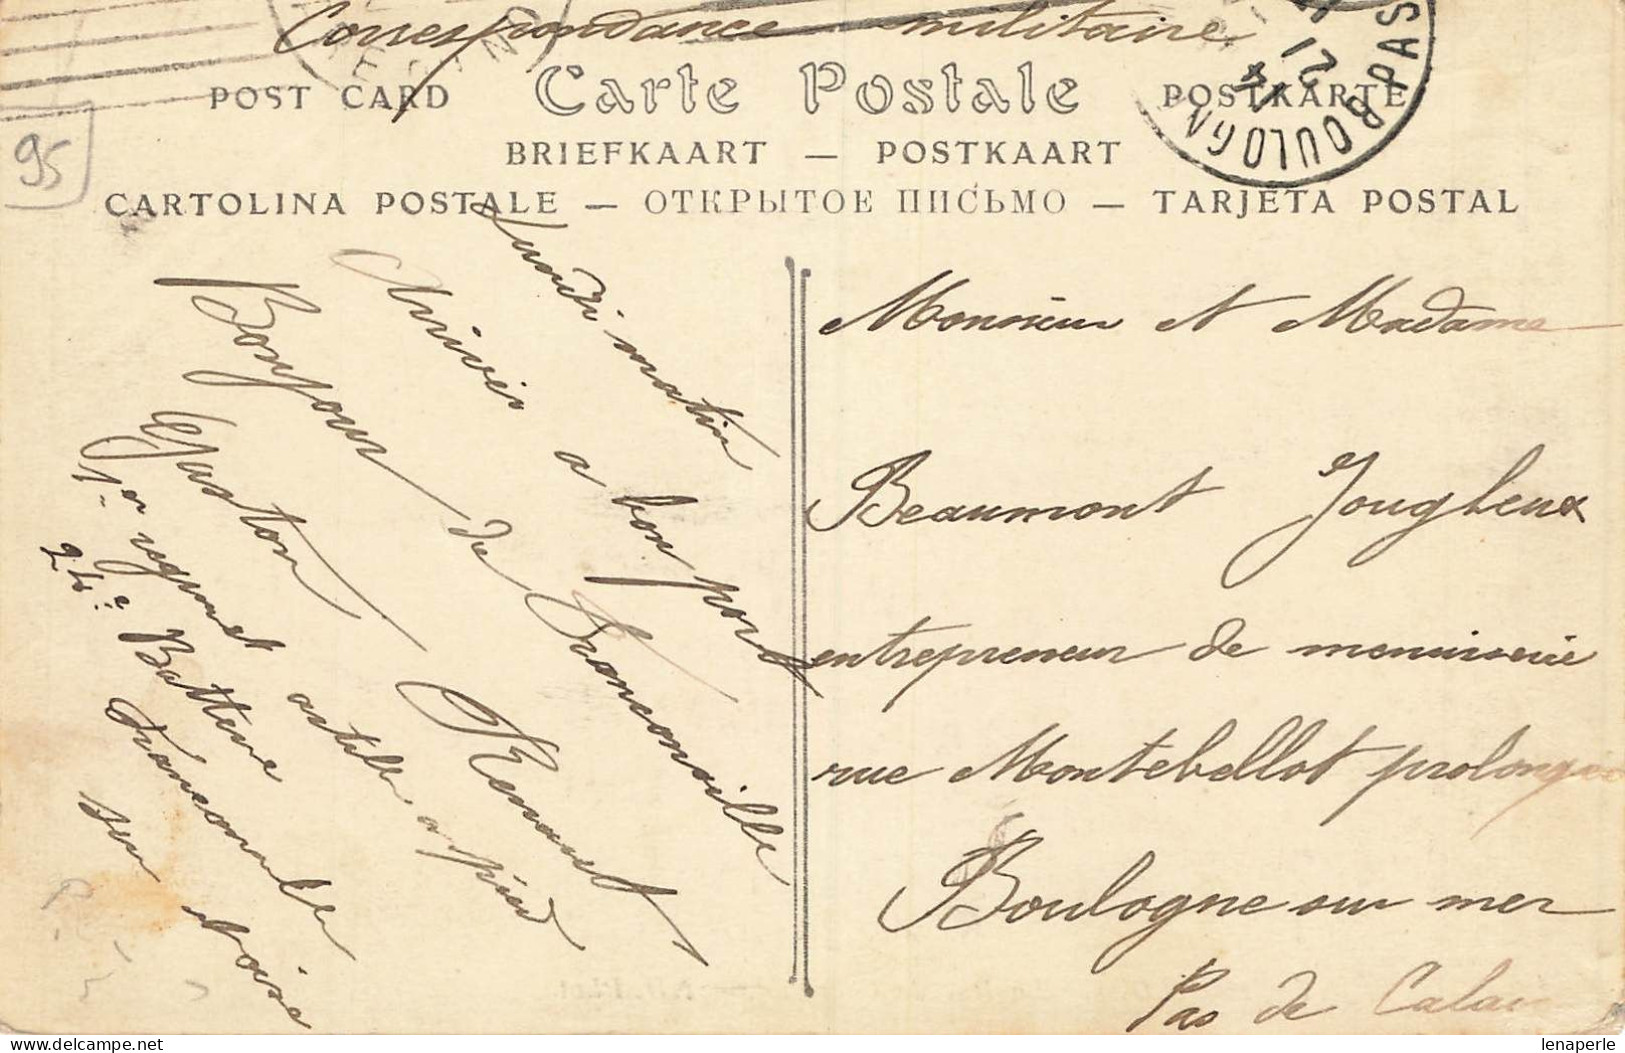 Correspondance militaire
POST CARD Carte Postale POSTKARTE
BRIEFKAART — POSTKAART
CARTOLINA POSTALE — ОТКРЫТОЕ ПИСЬМО — TARJETA POSTAL
BOULOGN
PAS
21
14
95
Lundi matin
Arrivés a bon port
Bonjour de Franconville
Gaston Renaut
1er regiment artillerie a pied
24e Batterie
Franconville
sur
Monsieur et Madame
Beaumont Jougleux
entrepreneur de menuiserie
rue Montebellot prolongée
Boulogne sur mer
Pas de Calais
lenaperle